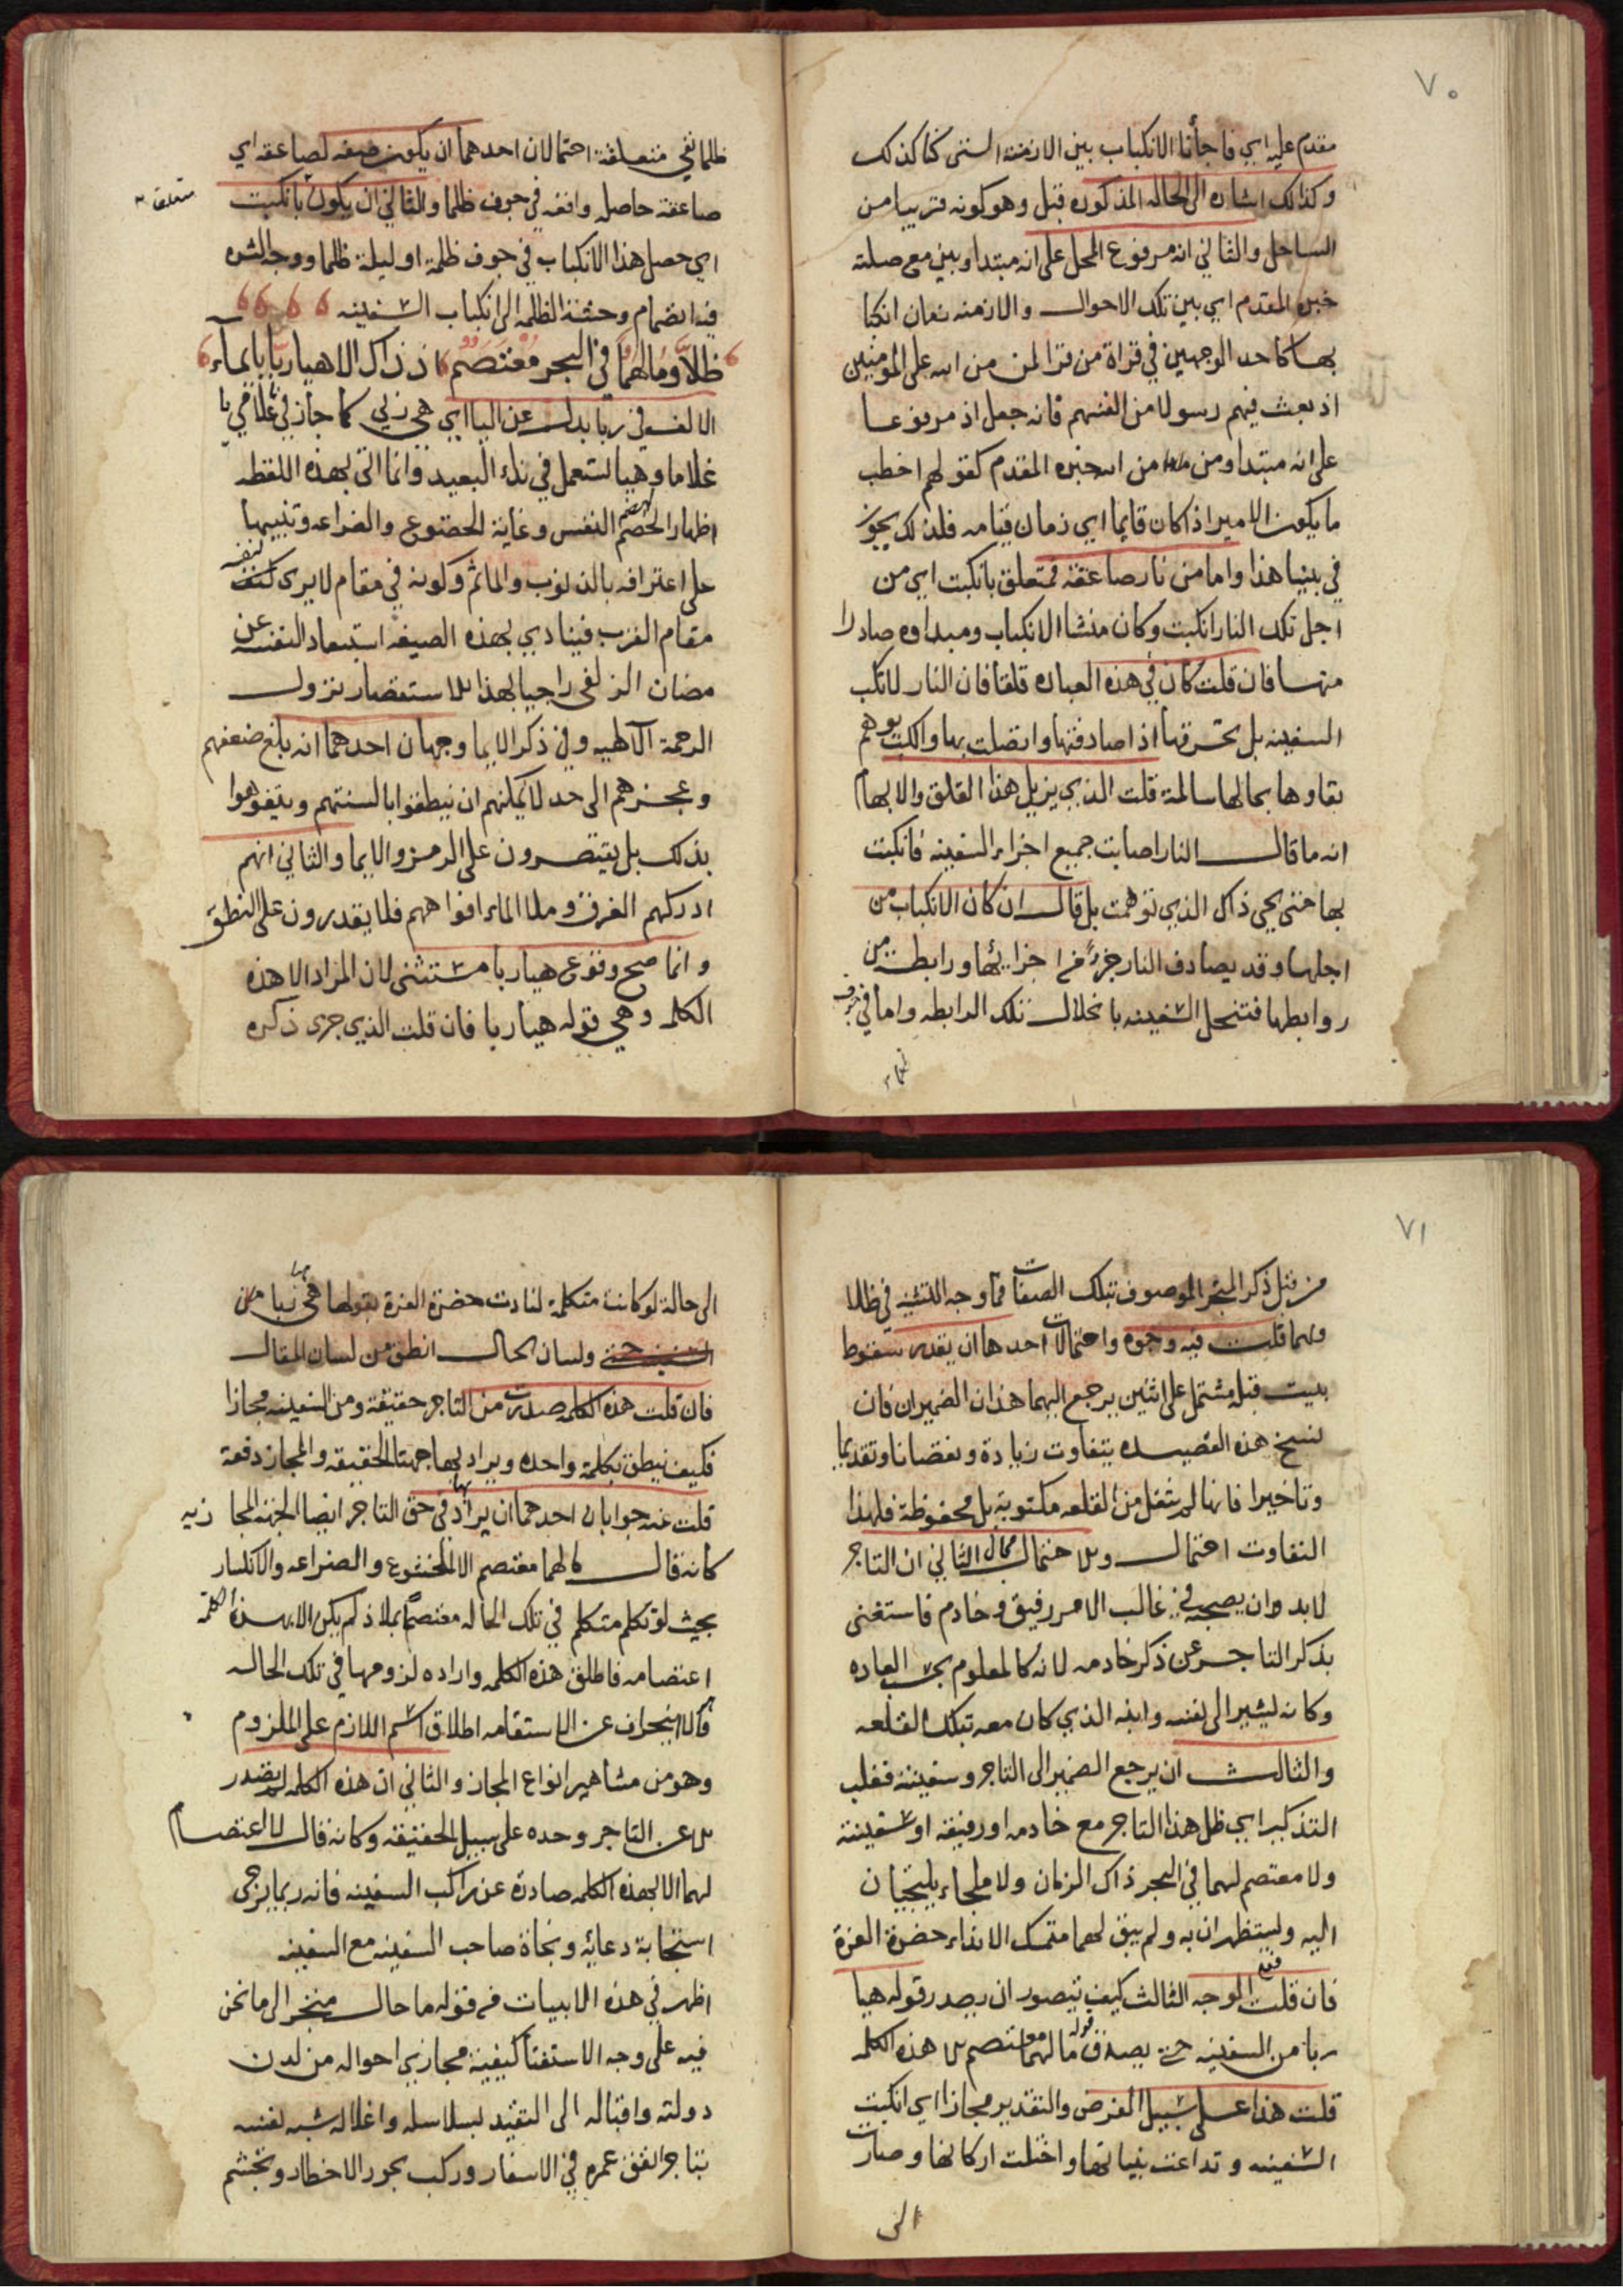 ٧٠
مقدم عليه اي فاجأنا الانكباب بين الازمنة التي كنا كذلك
وكذلك اشاره الى الحاله المذكوره قبل وهو كونه قريبا من
الساحل والثاني انه مرفوع المحل على انه مبتدا وبيني مع صلته
خبره المقدم اي بين تلك الاحوال والازمنه زمان انكبا
بها كاحد الوجهين في قراة من قرا لمن من الله على المومنين
اذ بعث فيهم رسولا من انفسهم فانه جعل اذ مرفوعا
على انه مبتدا ومن من الله خبره المقدم كقولهم اخطب
ما يكون الامير اذا كان قايما اي زمان قيامه فلذلك يجوز
في بينها هذا واما من نار صاعقة فمتعلق بانكبت اي من
اجل تلك النار انكبت وكان منشا الانكباب ومبداوه صادرا
منها فان قلت كان في هذه العباره قلقا فان النار لا تكب
السفينه بل تحرقها اذا صادفتها واتصلت بها والكب يوهم
بقاوها بحالها سالمة قلت الذي يزيل هذا القلق والابهام
انه ما قال النار اصابت جميع اجزاء السفينه فانكبت
بها حتى يجي ذاك الذي توهمت بل قال ان كان الانكباب من
اجلها وقد يصادف النار جزءً من اجزائها ورابطة من
روابطها فتنحل السفينه بانحلال تلك الرابطه واما في جوف
ظلما
ظلما ففي متعلقة احتمالان احدهما ان يكون صفه لصاعقه اي
صاعقة حاصله واقعه في جوف ظلما والثاني ان يكون بانكبت
متعلقا
اي حصل هذا الانكباب في جوف ظلمة او ليلة ظلما ووجه الشره
فيه انضمام وحشة الظلمه الى انكباب السفينه
ظلاَّ وَمَا لَهُمَا في البحر مُعْتَصَمٌ اذ ذاك الا هيا ربّا بايماء
الالف في ربا بدل عن اليا اي هي ربي كما جاز في غلامي يا
غلاما وهيا تستعمل في نداء البعيد وانما اتى بهذه اللفظه
اظهارا لهضم النفس وغاية الخضوع والضراعه وتنبيها
على اعترافه بالذنوب والماثم وكونه في مقام لا يرى نفسه
مقام القرب فينادي بهذه الصيغه استبعاد النفسه عن
مضان الزلفى راجيا بهذا الاستقصار نزول
الرحمة الآلهيه وفي ذكر الايما وجهان احدهما انه بلغ ضعفهم
وعجزهم الى حد لا يمكنهم ان ينطقوا بالسنتهم ويتفوهوا
بذلك بل يقتصرون على الرمز والايما والثاني انهم
ادركهم الغرق وملا الماء افواههم فلا يقدرون على النطق
وانما صح وقوع هيا ربا مستثنى لان المراد الا هذه
الكلمه وهي قوله هيا ربا فان قلت الذي جرى ذكره
٧١
من قبل ذكر المتجر الموصوف بتلك الصفات فما وجه التثنيه في ظلا
ولهما قلت فيه وجوه واحتمالات احدها ان يقدر سقوط
بيت قبله مشتمل على اثنين يرجع اليهما هذان الضميران فان
نسخ هذه القصيده يتفاوت زيادة ونقصانا وتقديما
وتاخيرا فانها لم تنقل من القلعه مكتوبة بل محفوظة فلهذا
التفاوت احتمال والاحتمال الثاني ان التاجر
لا بد وان يصحبه في غالب الامر رفيق وخادم فاستغنى
بذكر التاجر عن ذكر خادمه لانه كالمعلوم بحسب العاده
وكانه يشير الى نفسه وابنه الذي كان معه بتلك القلعه
والثالث ان يرجع الضمير الى التاجر وسفينته فغلب
التذكير اي ظل هذا التاجر مع خادمه او رفيقه او سفينته
ولا معتصم لهما في البحر ذاك الزمان ولا ملجاء يلتجيان
اليه ويستظهران به ولم يبق لهما متمسك الا نداء حضرة العزة
فان قلت فعلى الوجه الثالث كيف يتصور ان يصدر قوله هيا
ربا من السفينه حتى يصدق قوله ما لهما معتصم الا هذه الكلمه
قلت هذا على سبيل الفرض والتقدير مجازا اي انكبت
السفينه وتداعت بنيانها واختلت اركانها وصارت
الى
الى حالة لو كانت متكلمة لنادت حضرة العزة بقولها هيا ربا
ولسان الحال انطق من لسان المقال
فان قلت هذه الكلمه صدرت من التاجر حقيقة ومن السفينه مجازا
فكيف ينطق بكلمة واحده ويراد بها جهتا الحقيقه والمجاز دفعة
قلت عنه جوابان احدهما ان يراد بها في حق التاجر ايضا الجهة المجازيه
كانه قال ما لهما معتصم الا الخشوع والضراعه والانكسار
بحيث لو تكلم متكلم في تلك الحاله معتصما بملاذ لم يكن الا بهذه الكلمة
اعتصامه فاطلق هذه الكلمه واراده لزومها في تلك الحاله
كالانحراف عن الاستقامه اطلاق اسم اللازم على الملزوم
وهو من مشاهير انواع المجاز والثاني ان هذه الكلمه لم تصدر
الا عن التاجر وحده على سبيل الحقيقه وكانه قال لا اعتصام
لهما الا بهذه الكلمه صادرة عن راكب السفينه فانه ربما يرجى
استجابة دعائه ونجاة صاحب السفينه مع السفينه
اظهر في هذه الابيات من قوله ما حال متجر الى ما نحن
فيه على وجه الاستفتا كيفية مجاري احواله من لدن
دولته واقباله الى التقيد بسلاسله واغلاله شبه نفسه
بتاجر انفق عمره في الاسفار وركب بحور الاخطار وتجشم